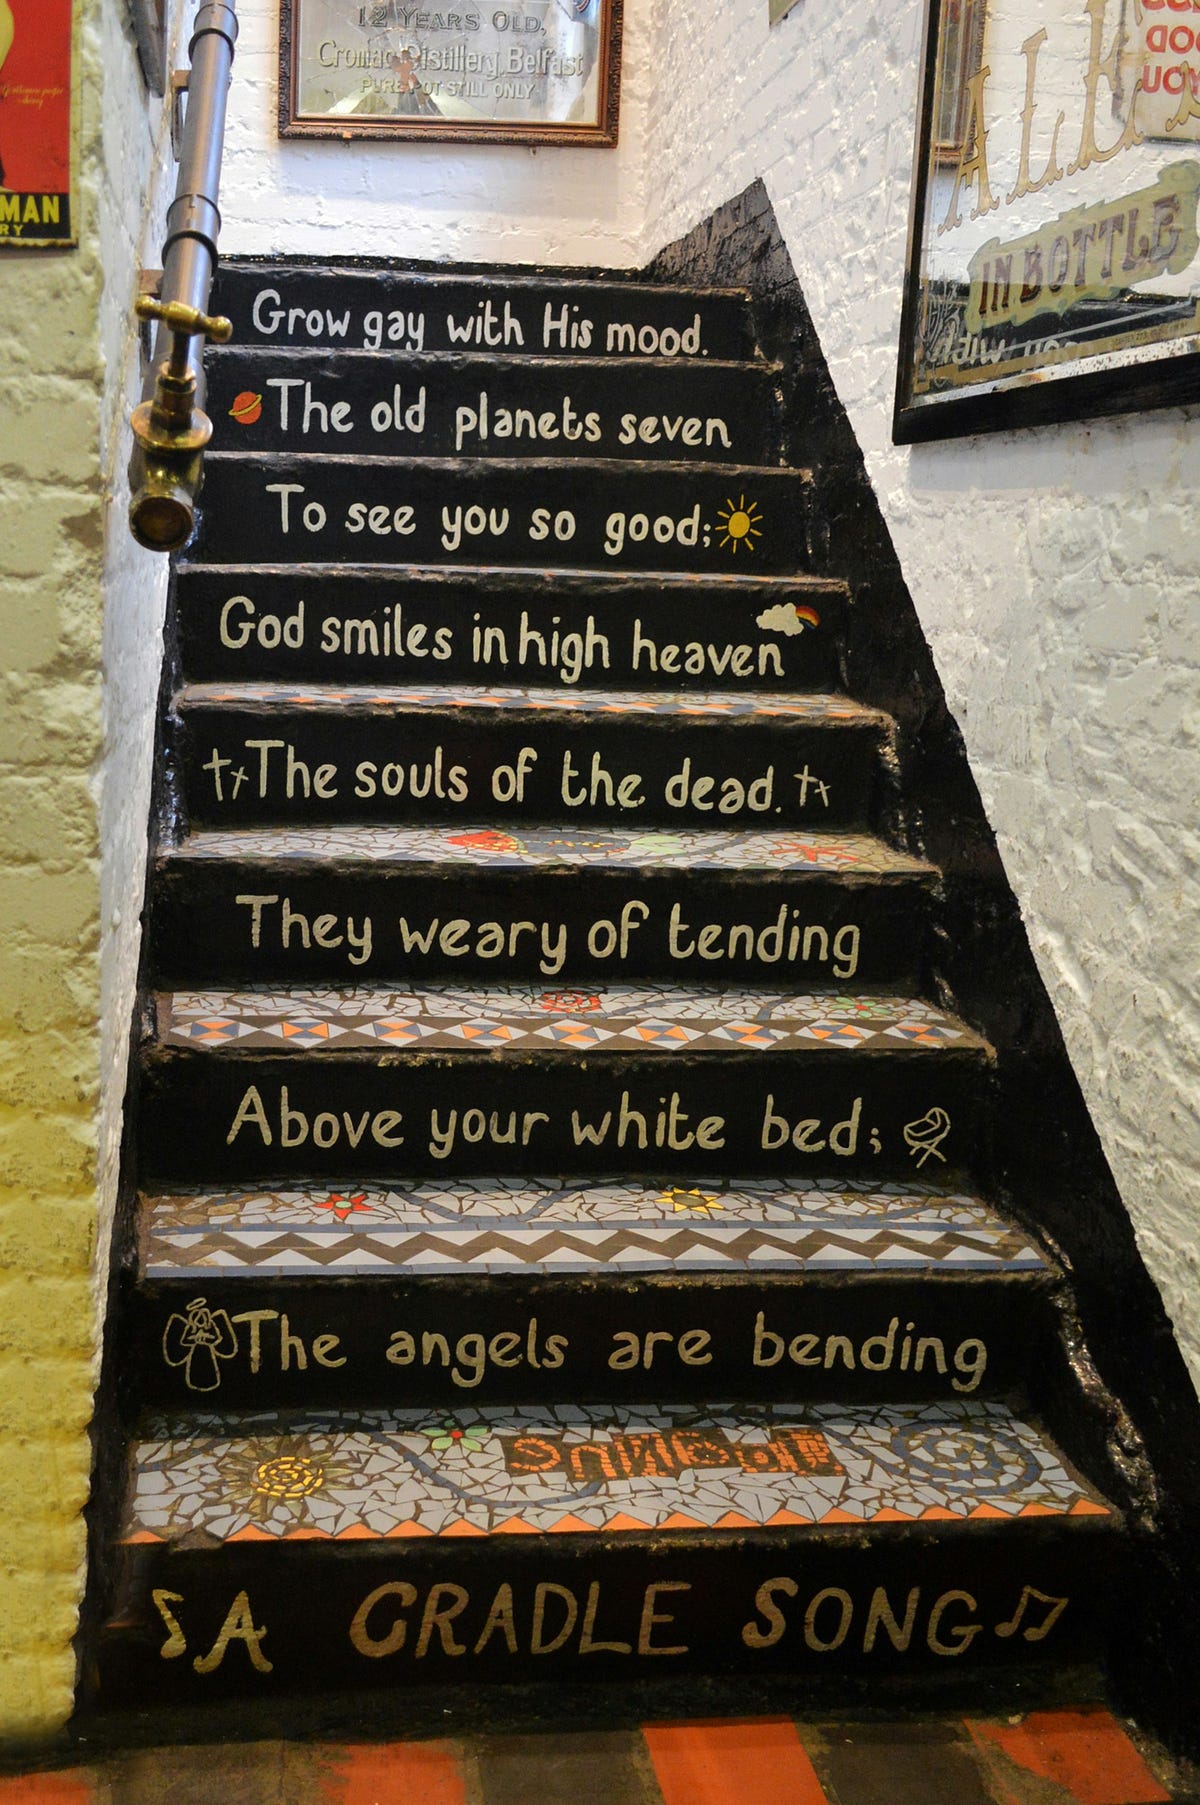 12 YEARS OLD,
Cromac Distillery, Belfast
PURE POT STILL ONLY
MAN
RY
ALE
IN BOTTLE
Grow gay with His mood.
The old planets seven
To see you so good;
God smiles in high heaven
The souls of the dead.
They weary of tending
Above your white bed;
The angels are bending
A CRADLE SONG